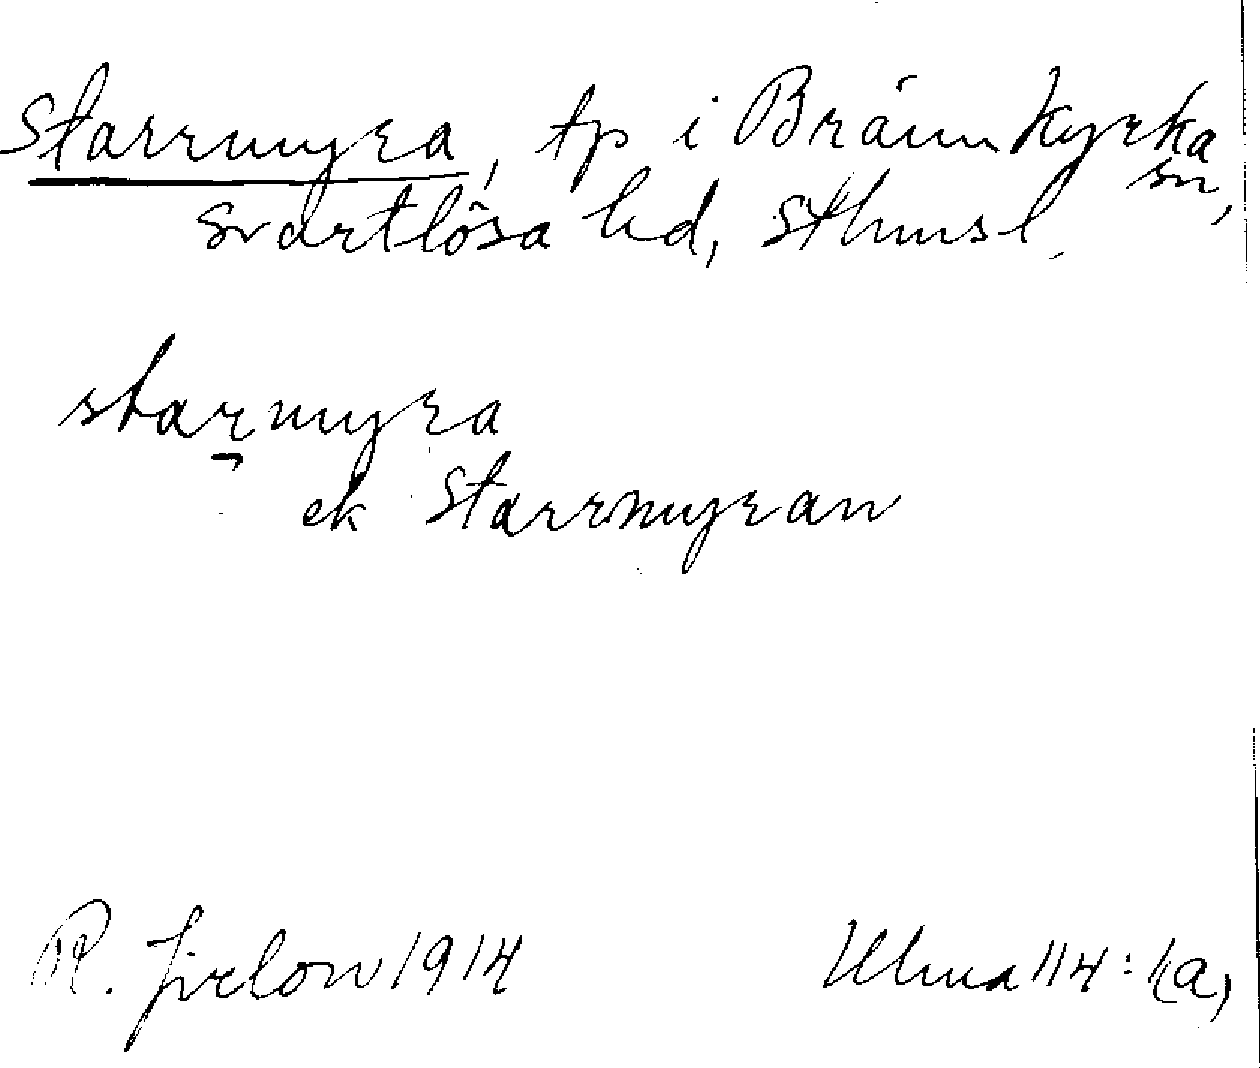 Starrmyra, tp i Brännkyrka sn,
Svartlösa hd, Sthmsl.
starmyra
ek Starrmyran
R. Jirlow 1914
Ulma 114:1a,